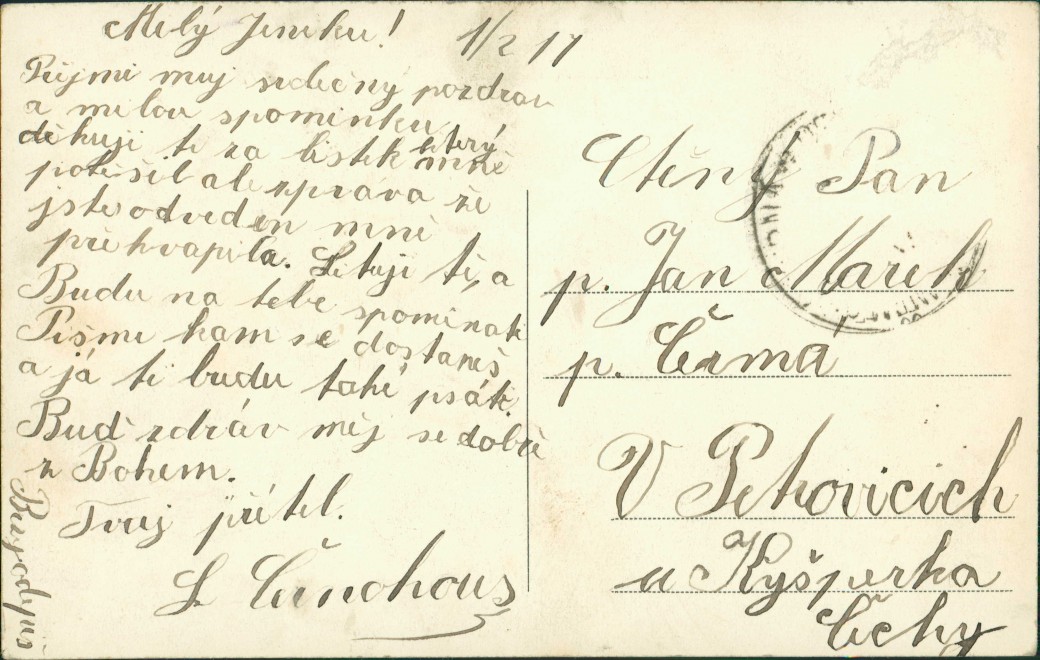 Milý Jeníku!
1/2 17
Přijmi muj srdečný pozdrav
a milou spomínku
děkuji ti za lístek který mně
potěšil ale zpráva že
jste odveden mně
překvapila. Lituji tě, a
Budu na tebe spominat
Pišmi kam se dostaneš
a já ti budu také psát.
Buď zdráv měj se dobře
z Bohem.
Tvuj přítel.
L Černohous
Brzo odpiš
Ctěný Pan
p. Jan Mareš
p. Čermá
V Petrovicích
u Kyšperka
Čechy